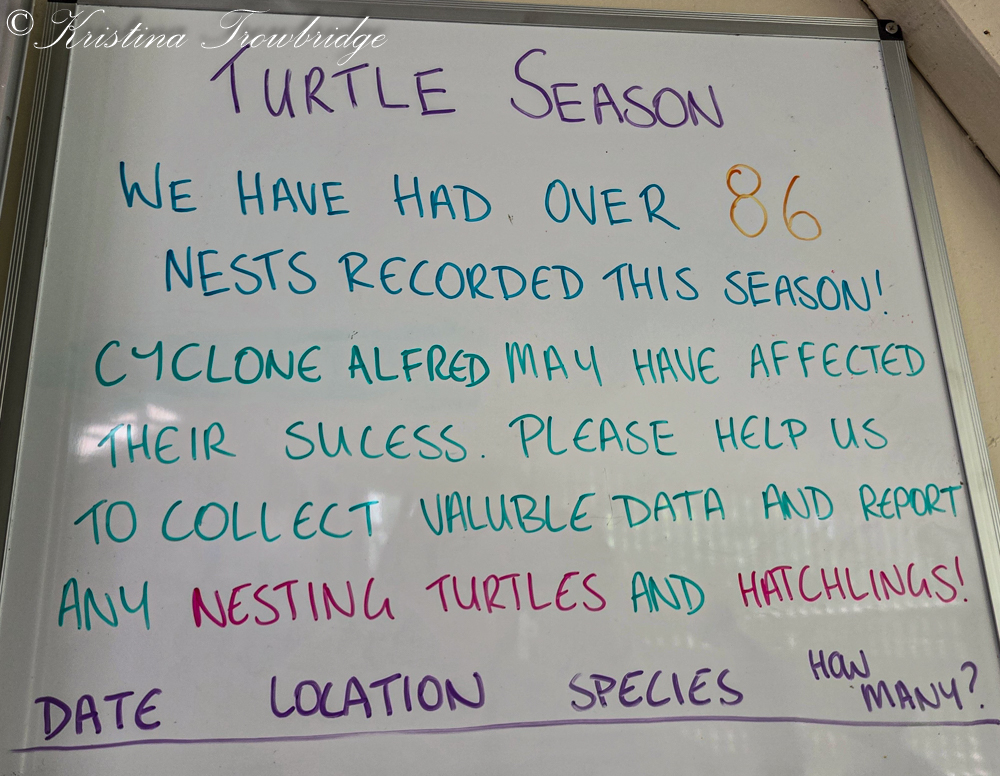 © Kristina Trowbridge
TURTLE SEASON
WE HAVE HAD OVER 86
NESTS RECORDED THIS SEASON!
CYCLONE ALFRED MAY HAVE AFFECTED
THEIR SUCESS. PLEASE HELP US
TO COLLECT VALUBLE DATA AND REPORT
ANY NESTING TURTLES AND HATCHLINGS!
DATE LOCATION SPECIES HOW MANY?